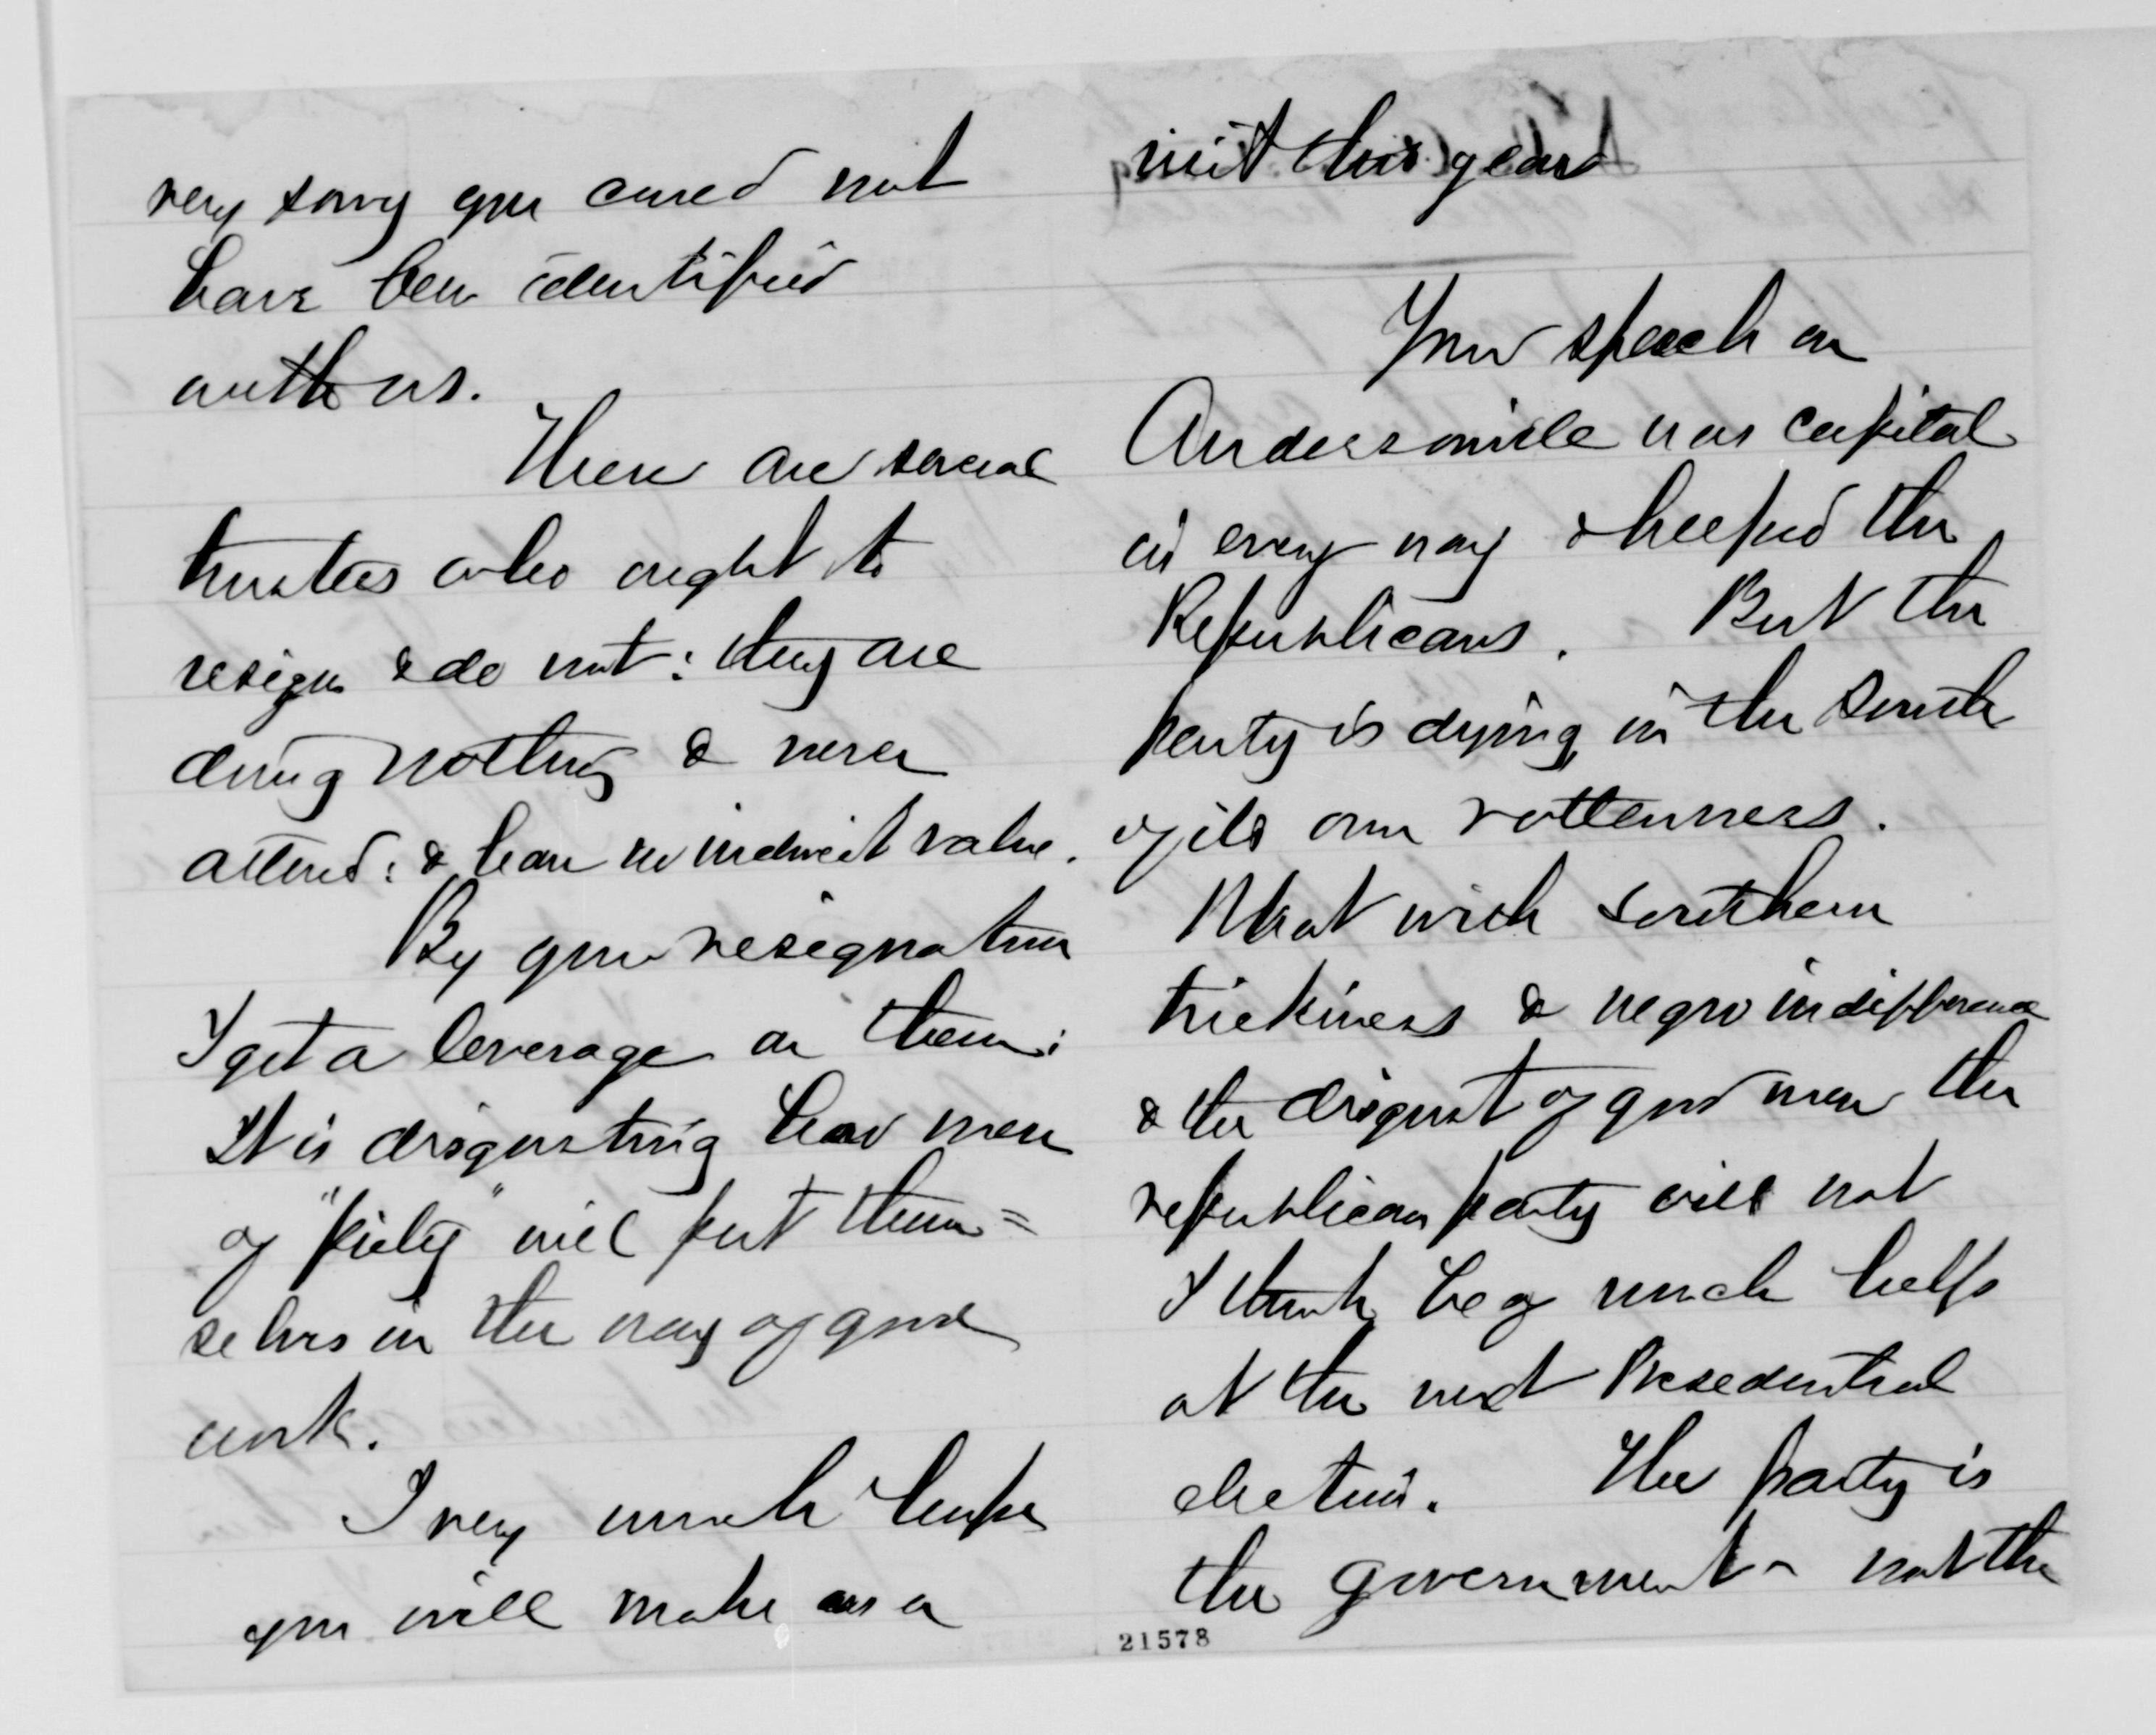 very sorry you cared not
have been identified
with us.
There are several
trustees who ought to
resign & do not: they are
doing nothing & never
attend: & have no indirect value.
By your resignation
I get a leverage on them:
It is disgusting how men
of "piety" will put them=
selves in the way of good
work.
I very much hope
you will make us a
visit this year
Your speech on
Andersonville was capital
in every way & helped the
Republicans. But the
party is dying in the South
of its own rottenness.
What with Southern
trickiness & negro indifference
& the disgust of good men the
republican party will not
I think be of much help
at the next Presedential
election. The party is
the government - not the
21578